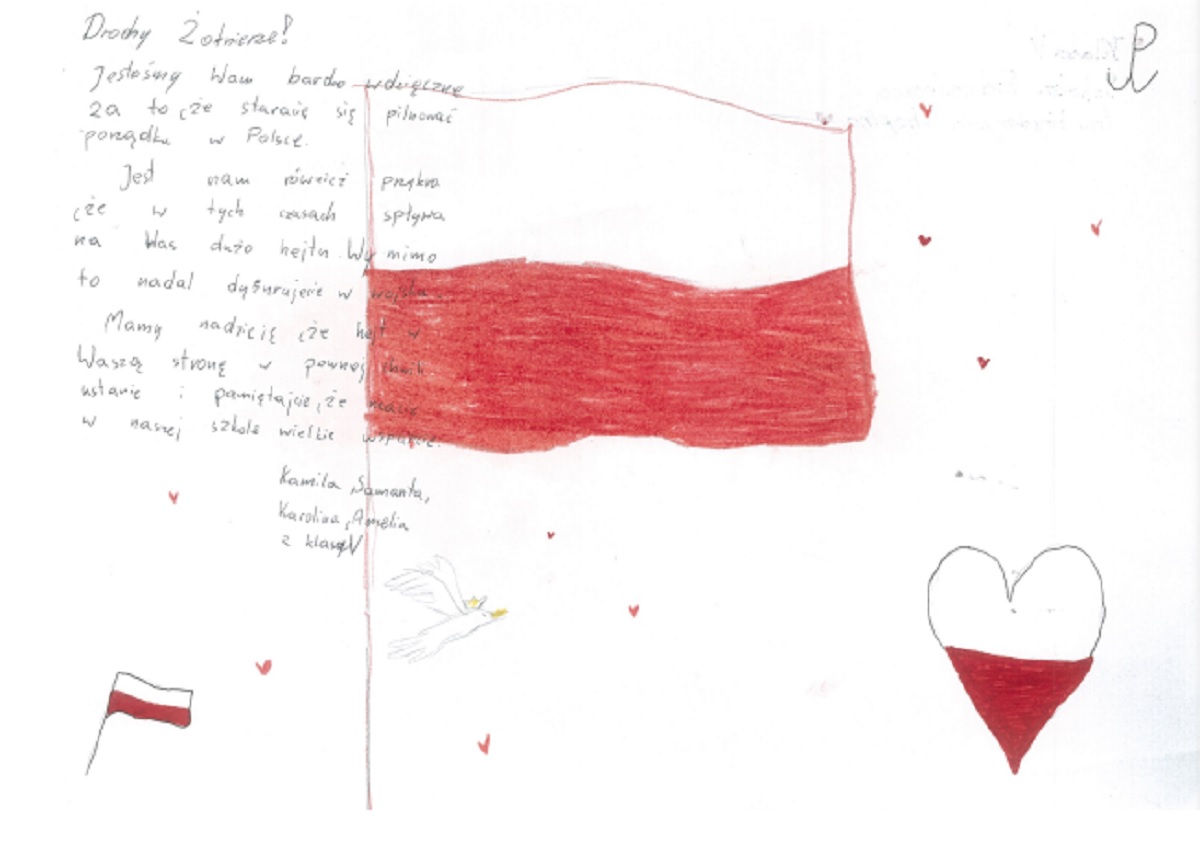 Drochy Żołnierze!
Jesteśmy Wam bardzo wdzięczne
za to, że staracie się pilnować
porządku w Polsce.
Jest nam również przykro
, że w tych czasach spływa
na Was dużo hejtu. Wy mimo
to nadal dyżurujecie w wojsku.
Mamy nadzieję, że hejt w
Waszą stronę w pewnej chwili
ustanie i pamiętajcie, że macie
w naszej szkole wielkie wsparcie.
Kamila, Samanta,
Karolina, Amelia
z klasy V